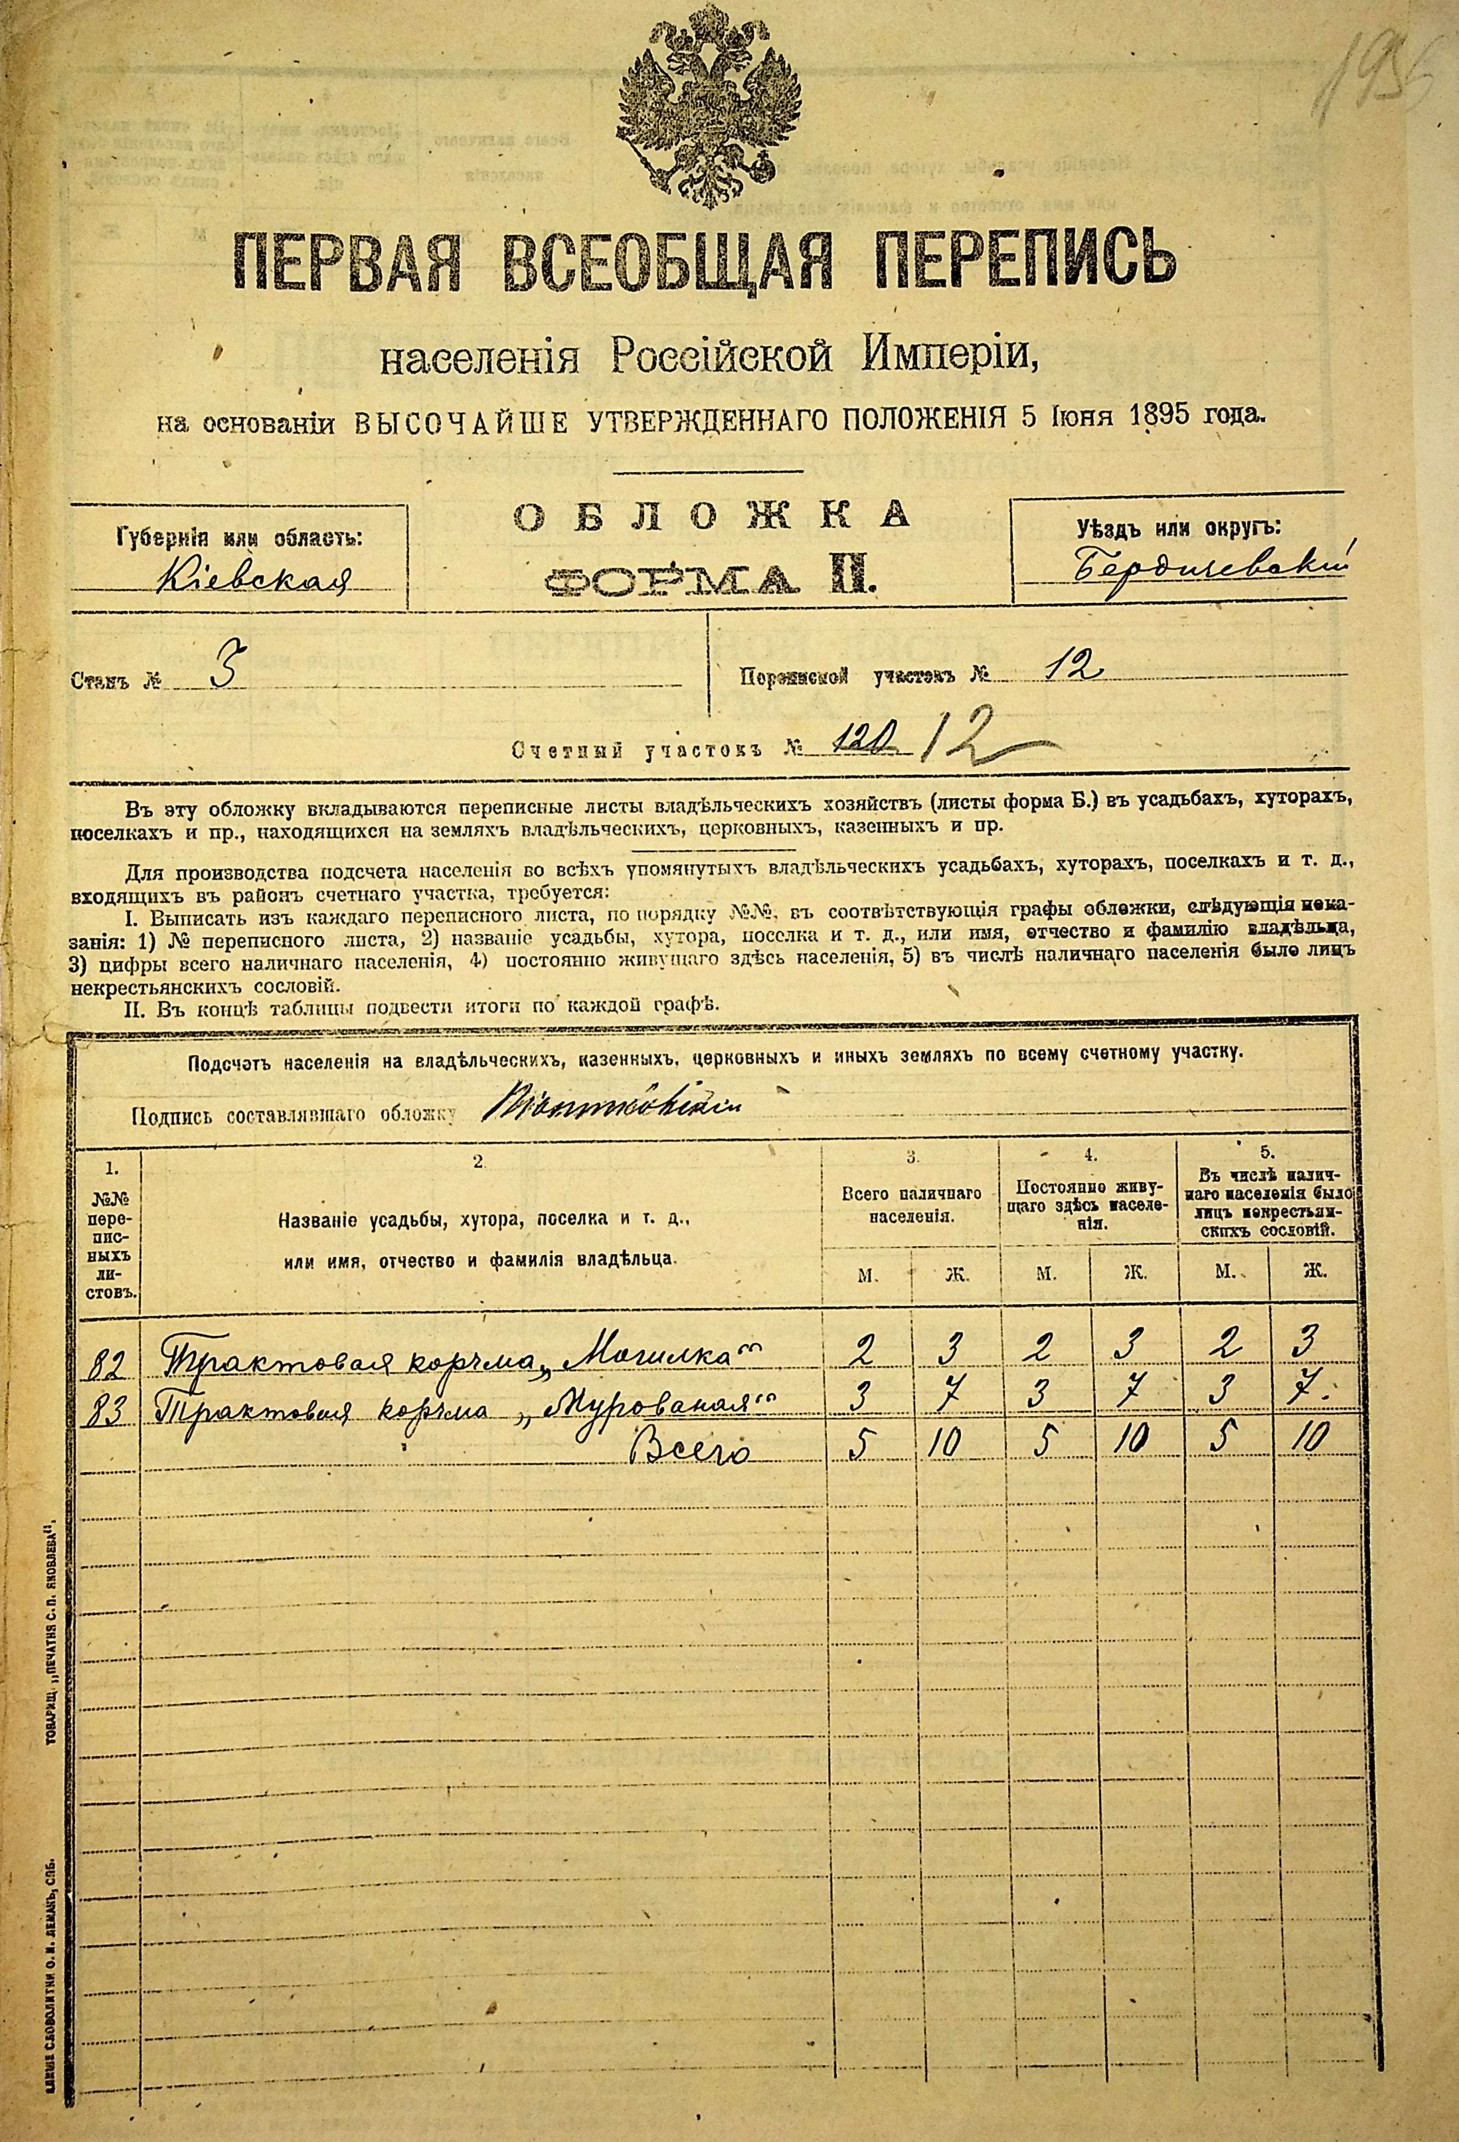 ПЕРВАЯ ВСЕОБЩАЯ ПЕРЕПИСЬ
населенія Россійской Имперіи,
на основаніи ВЫСОЧАЙШЕ УТВЕРЖДЕННАГО ПОЛОЖЕНІЯ 5 Іюня 1895 года.
ОБЛОЖКА
ФОРМА II.
Губернія или область:
Кіевская
Уѣздъ или округъ:
Бердичевскій
Станъ № 3
Переписной участокъ № 12
Счетный участокъ № 120 12
Въ эту обложку вкладываются переписные листы владѣльческихъ хозяйствъ (листы форма Б.) въ усадьбахъ, хуторахъ,
поселкахъ и пр., находящихся на земляхъ владѣльческихъ, церковныхъ, казенныхъ и пр.
Для производства подсчета населенія во всѣхъ упомянутыхъ владѣльческихъ усадьбахъ, хуторахъ, поселкахъ и т. д.,
входящихъ въ районъ счетнаго участка, требуется:
I. Выписать изъ каждаго переписного листа, по порядку №№, въ соотвѣтствующія графы обложки, слѣдующія пока-
занія: 1) № переписного листа, 2) названіе усадьбы, хутора, поселка и т. д., или имя, отчество и фамилію владѣльца,
3) цифры всего наличнаго населенія, 4) постоянно живущаго здѣсь населенія, 5) въ числѣ наличнаго населенія было лицъ
некрестьянскихъ сословій.
II. Въ концѣ таблицы подвести итоги по каждой графѣ.
Подсчетъ населенія на владѣльческихъ, казенныхъ, церковныхъ и иныхъ земляхъ по всему счетному участку.
Подпись составлявшаго обложку
1. №№ пере- пис- ныхъ ли- стовъ.
2. Названіе усадьбы, хутора, поселка и т. д., или имя, отчество и фамилія владѣльца.
3. Всего наличнаго населенія.
4. Постоянно живу- щаго здѣсь населе- нія.
5. Въ числѣ налич- наго населенія было лицъ некрестьян- скихъ сословій.
М. Ж. М. Ж. М. Ж.
82 Трактовая корчма „Могилка“ 2 3 2 3 2 3
83 Трактовая корчма „Мурованая“ 3 7 3 7 3 7.
Всего 5 10 5 10 5 10
ТОВАРИЩ. „ПЕЧАТНЯ С. П. ЯКОВЛЕВА“.
СЛОВОЛИТНИ О. И. ЛЕМАНЪ, СПБ.